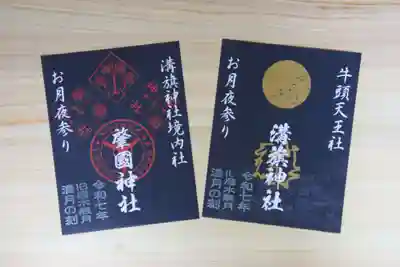 溝旗神社境内社
肇國神社
お月夜参り
令和七年
旧暦水無月
満月の刻
牛頭天王社
溝旗神社
お月夜参り
令和七年
旧暦水無月
満月の刻